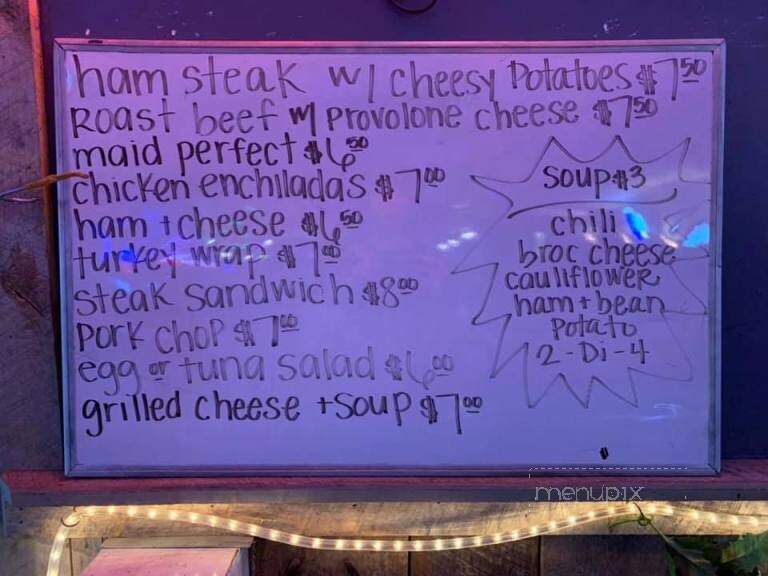 ham steak w/ cheesy Potatoes $7.50
Roast beef w/ Provolone cheese $7.50
maid perfect $6.50
chicken enchiladas $7.00
ham + cheese $6.50
turkey wrap $7.00
steak sandwich $8.00
pork chop $7.00
egg or tuna salad $6.00
grilled cheese + soup $7.00
soup $3
chili
broc cheese
cauliflower
ham + bean
Potato
2-Di-4
menupix